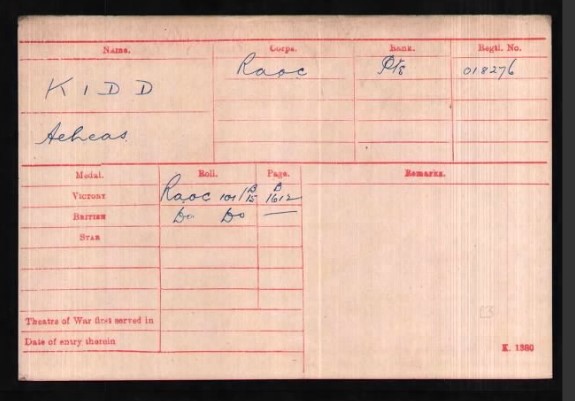 Name. Corps. Rank. Regtl. No.
KIDD Raoc Pte 018276
Medal. Roll. Page. Remarks.
VICTORY Raoc 101/B 15 B 1612
BRITISH Do Do —
STAR
Theatre of War first served in
Date of entry therein
K. 1380